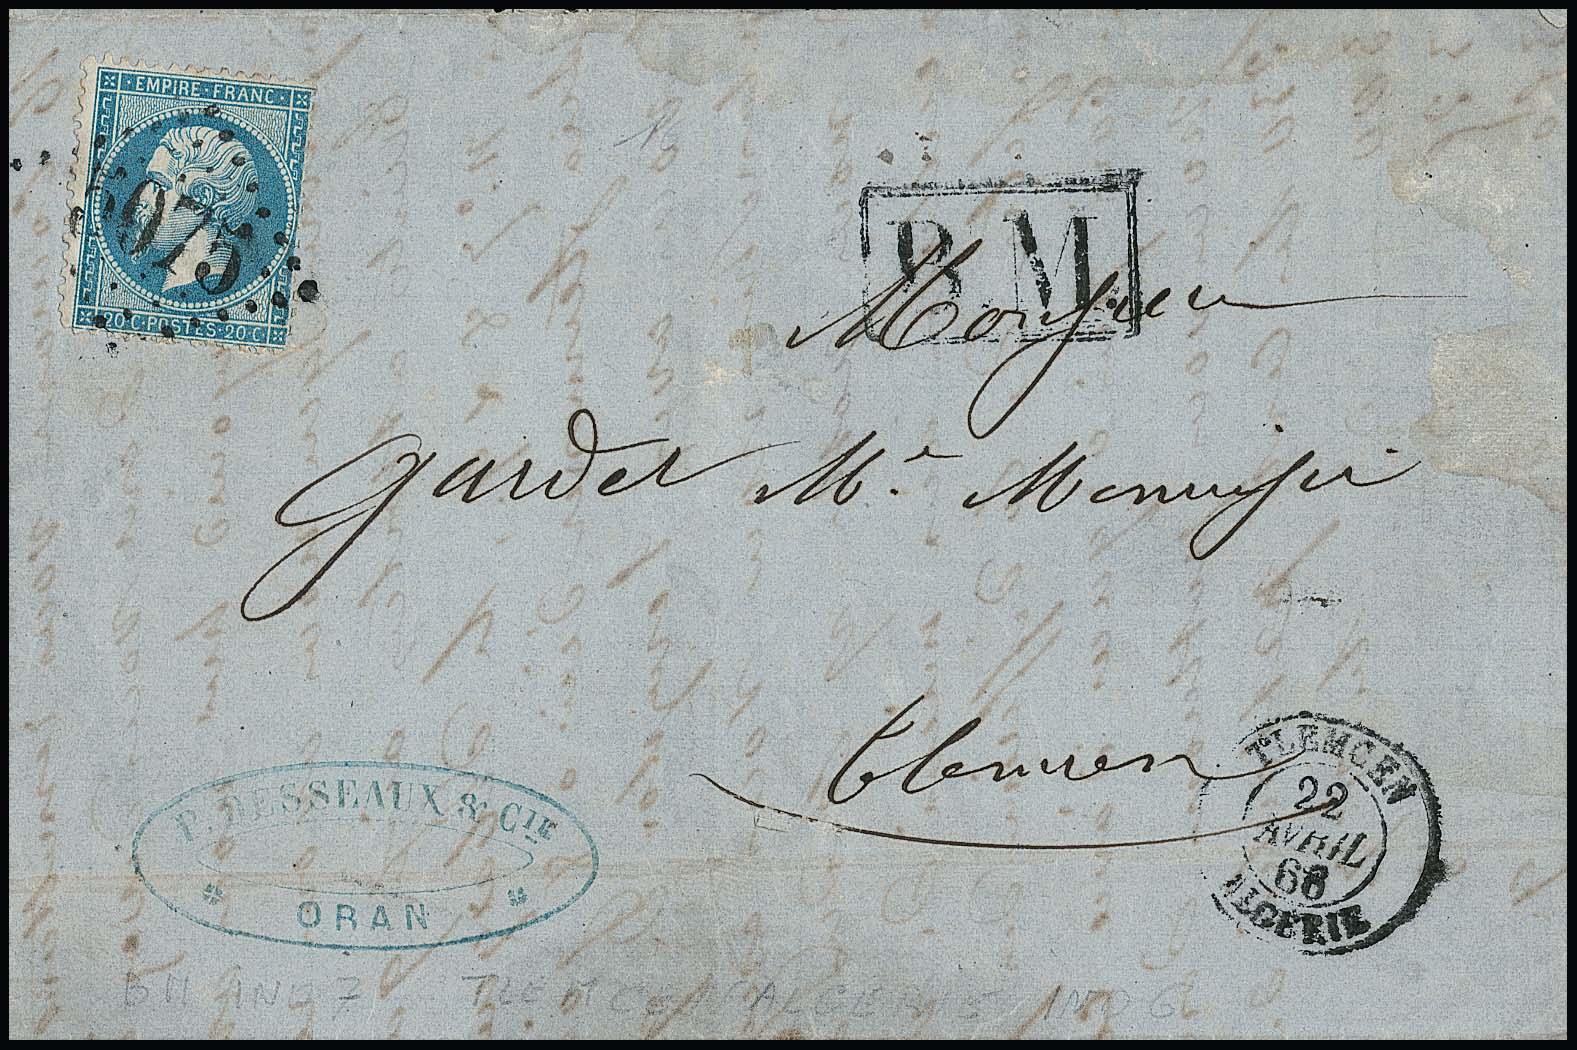 EMPIRE·FRANC
5075
20·C·POSTES·20·C
B.M.
Monsieur
Gardet Me. Menuisier
Tlemcen
TLEMCEN
22
AVRIL
66
ALGERIE
P. DESSEAUX & CIE
ORAN
BM IND 7 TLEMCEN ALGERIE IND 6